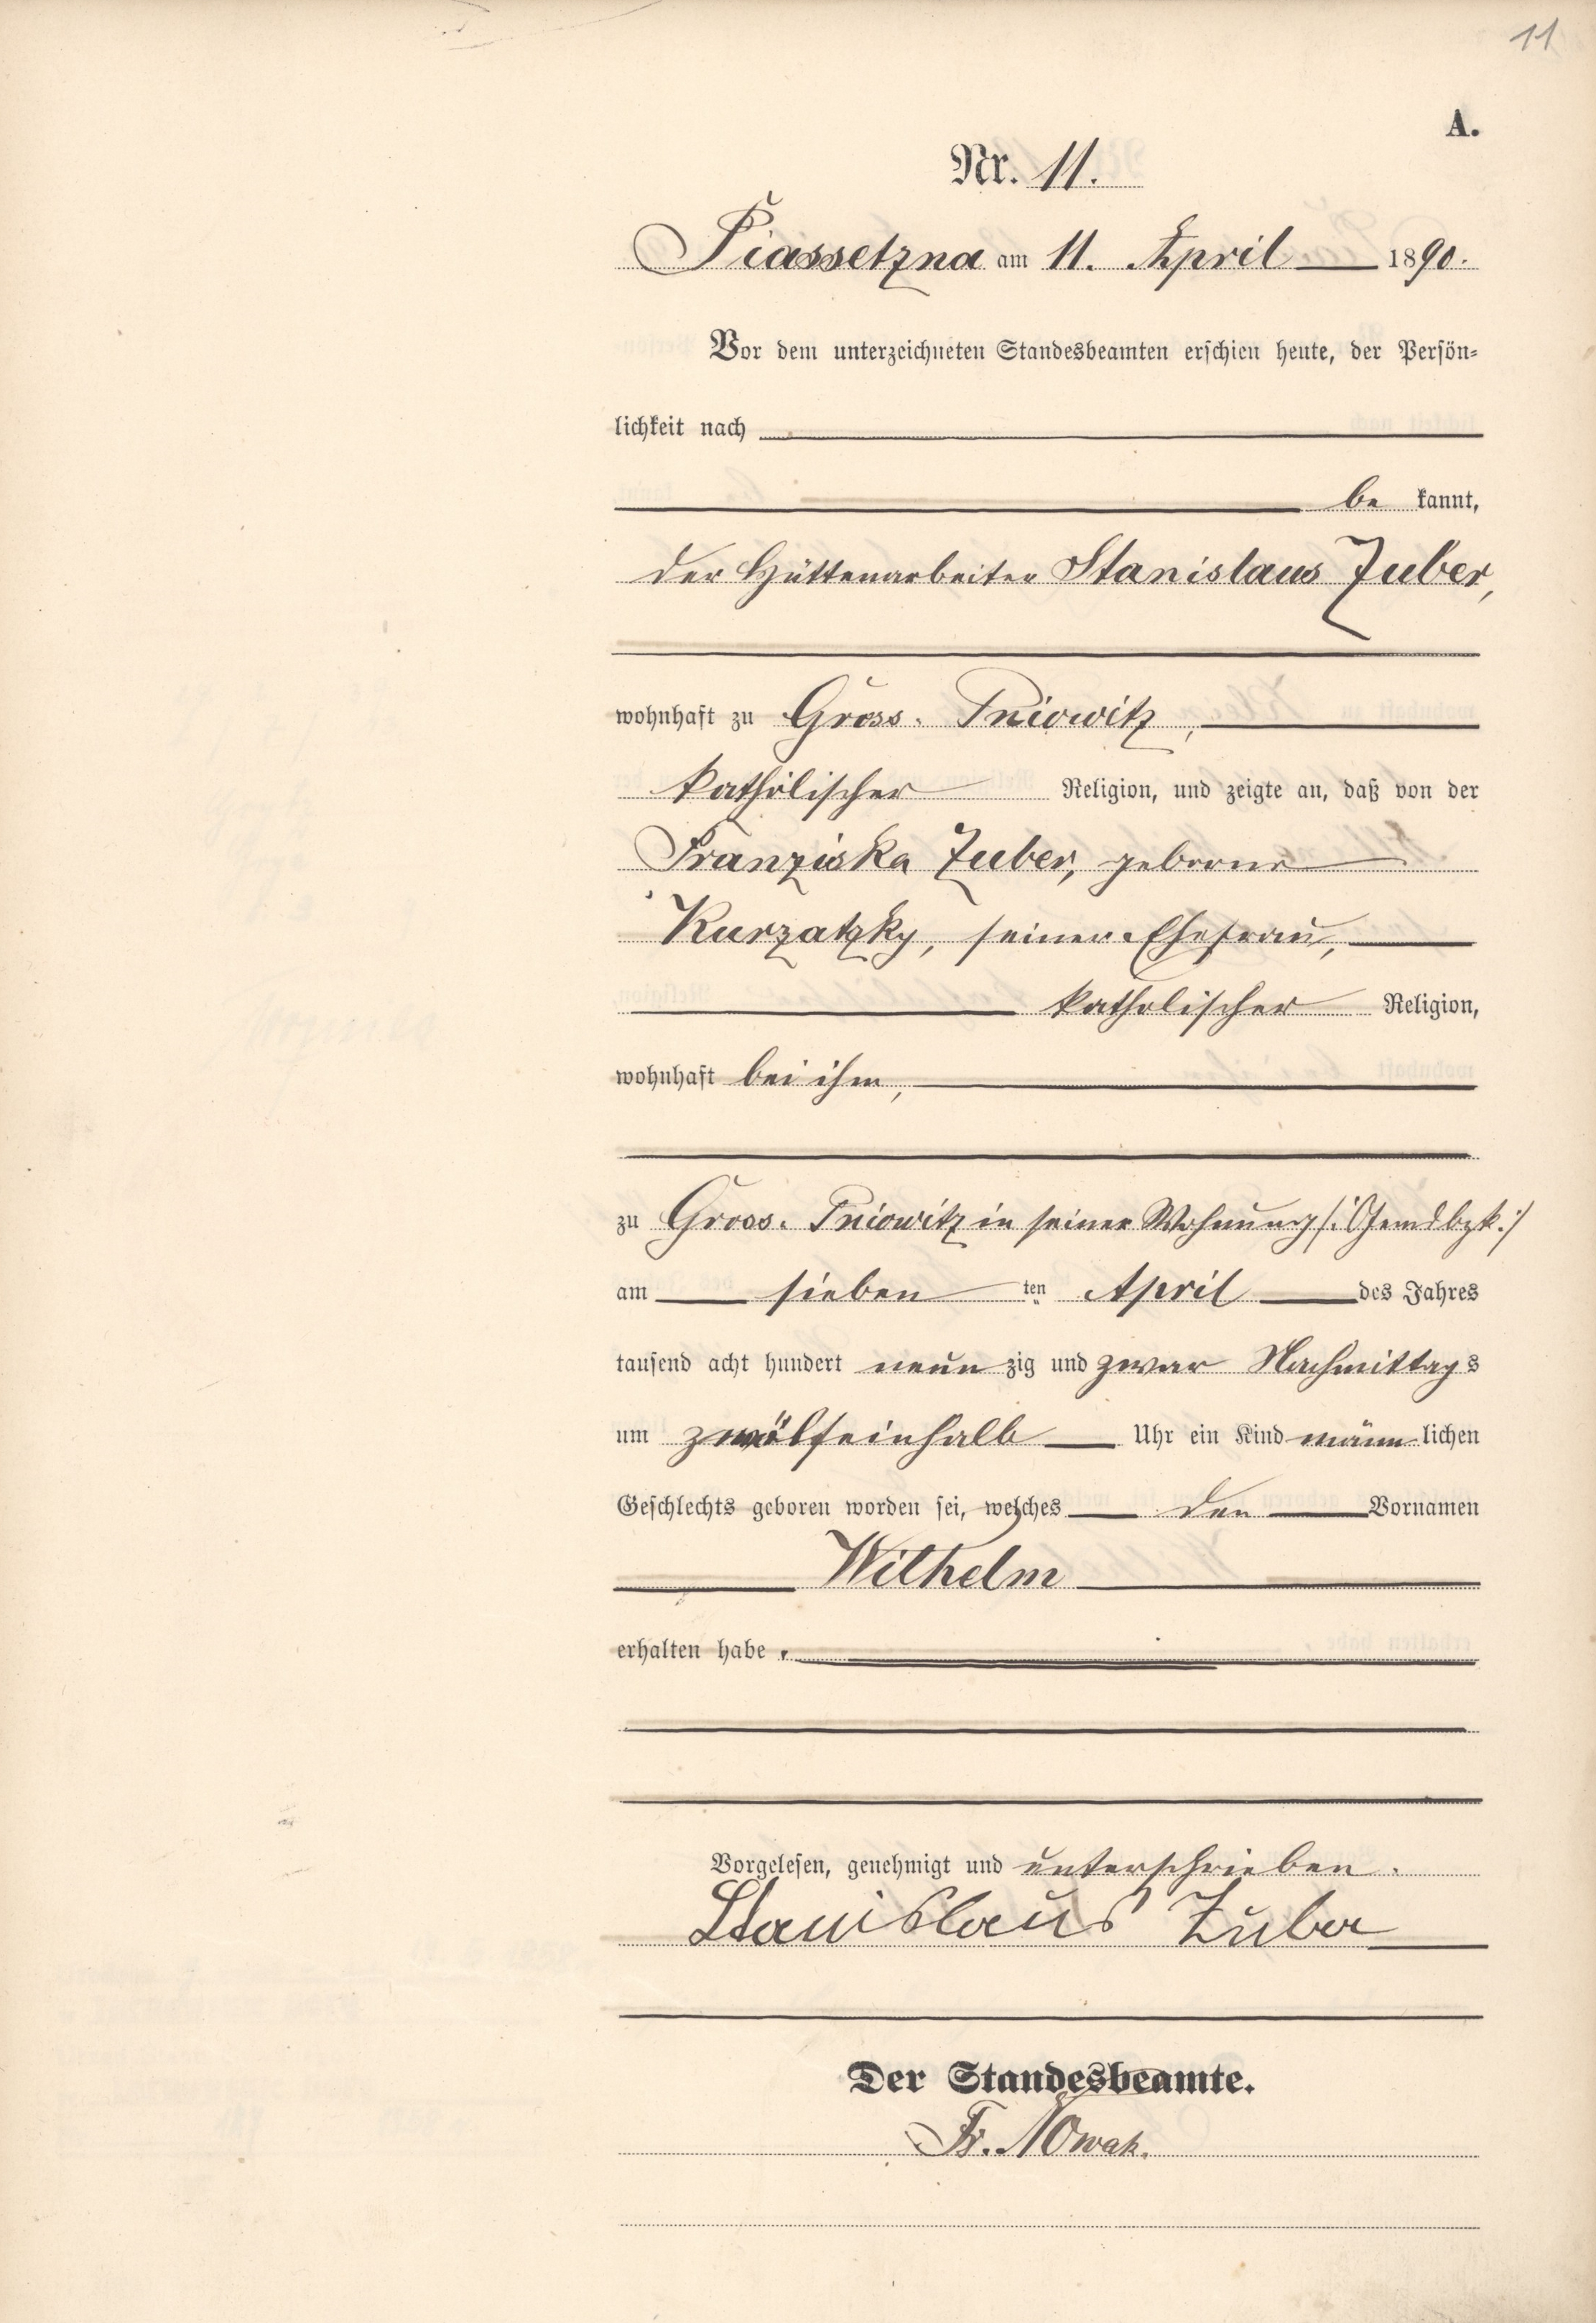 11
A.
Nr. 11.
Piassetzna am 11. April 1890.
Vor dem unterzeichneten Standesbeamten erschien heute, der Persön-
lichkeit nach
be kannt,
der Hüttenarbeiter Stanislaus Zuber,
wohnhaft zu Gross. Pniowitz,
katholischer Religion, und zeigte an, daß von der
Franziska Zuber, geborne
Kurzatzky, seiner Ehefrau,
katholischer Religion,
wohnhaft bei ihm,
zu Gross. Pniowitz in seiner Wohnung /:Gemdbzk:/
am sieben ten April des Jahres
tausend acht hundert neun zig und zwar Nachmittags
um zwölfeinhalb Uhr ein Kind männ lichen
Geschlechts geboren worden sei, welches den Vornamen
Wilhelm
erhalten habe.
Vorgelesen, genehmigt und unterschrieben.
Stanislaus Zuber
Der Standesbeamte.
Fr. Nowak.